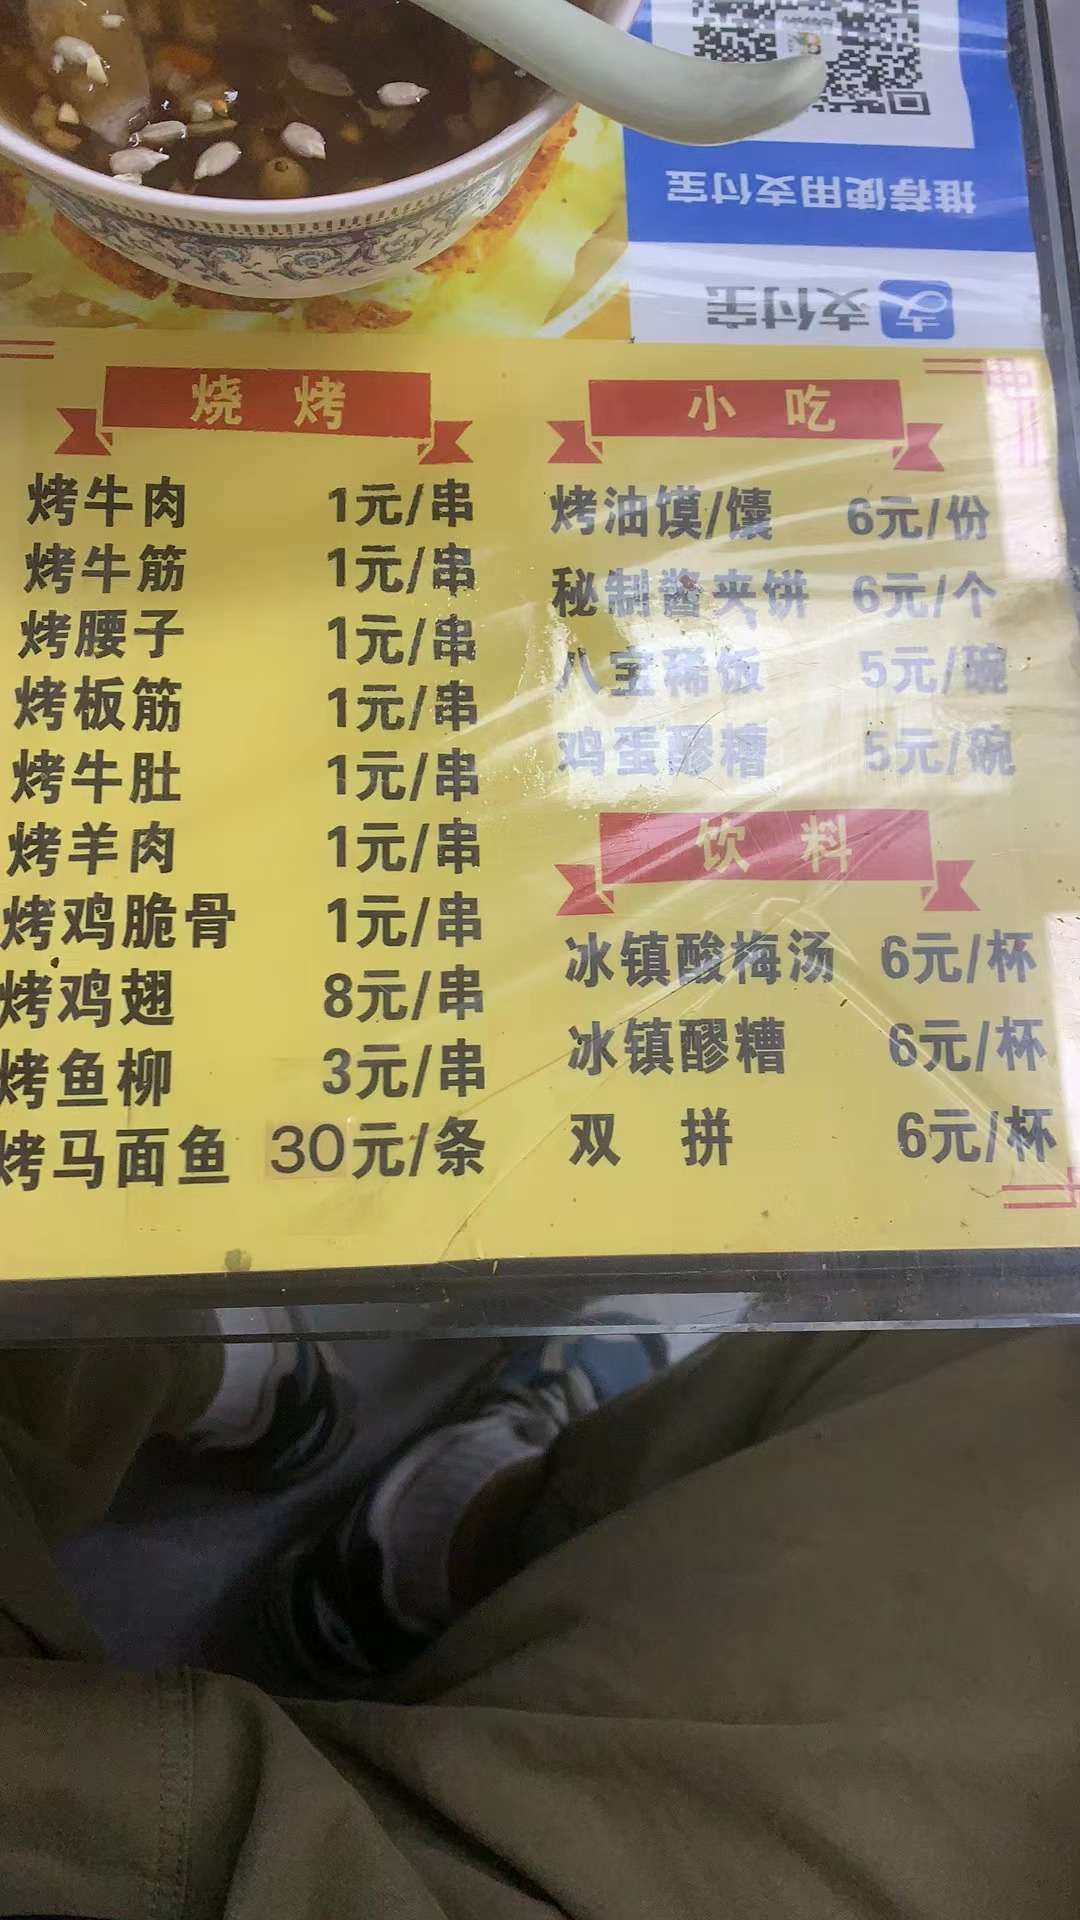 推荐使用支付宝
支付宝
烧烤
烤牛肉 1元/串
烤牛筋 1元/串
烤腰子 1元/串
烤板筋 1元/串
烤牛肚 1元/串
烤羊肉 1元/串
烤鸡脆骨 1元/串
烤鸡翅 8元/串
烤鱼柳 3元/串
烤马面鱼 30元/条
小吃
烤油馍/馕 6元/份
秘制酱夹饼 6元/个
八宝稀饭 5元/碗
鸡蛋醪糟 5元/碗
饮料
冰镇酸梅汤 6元/杯
冰镇醪糟 6元/杯
双拼 6元/杯